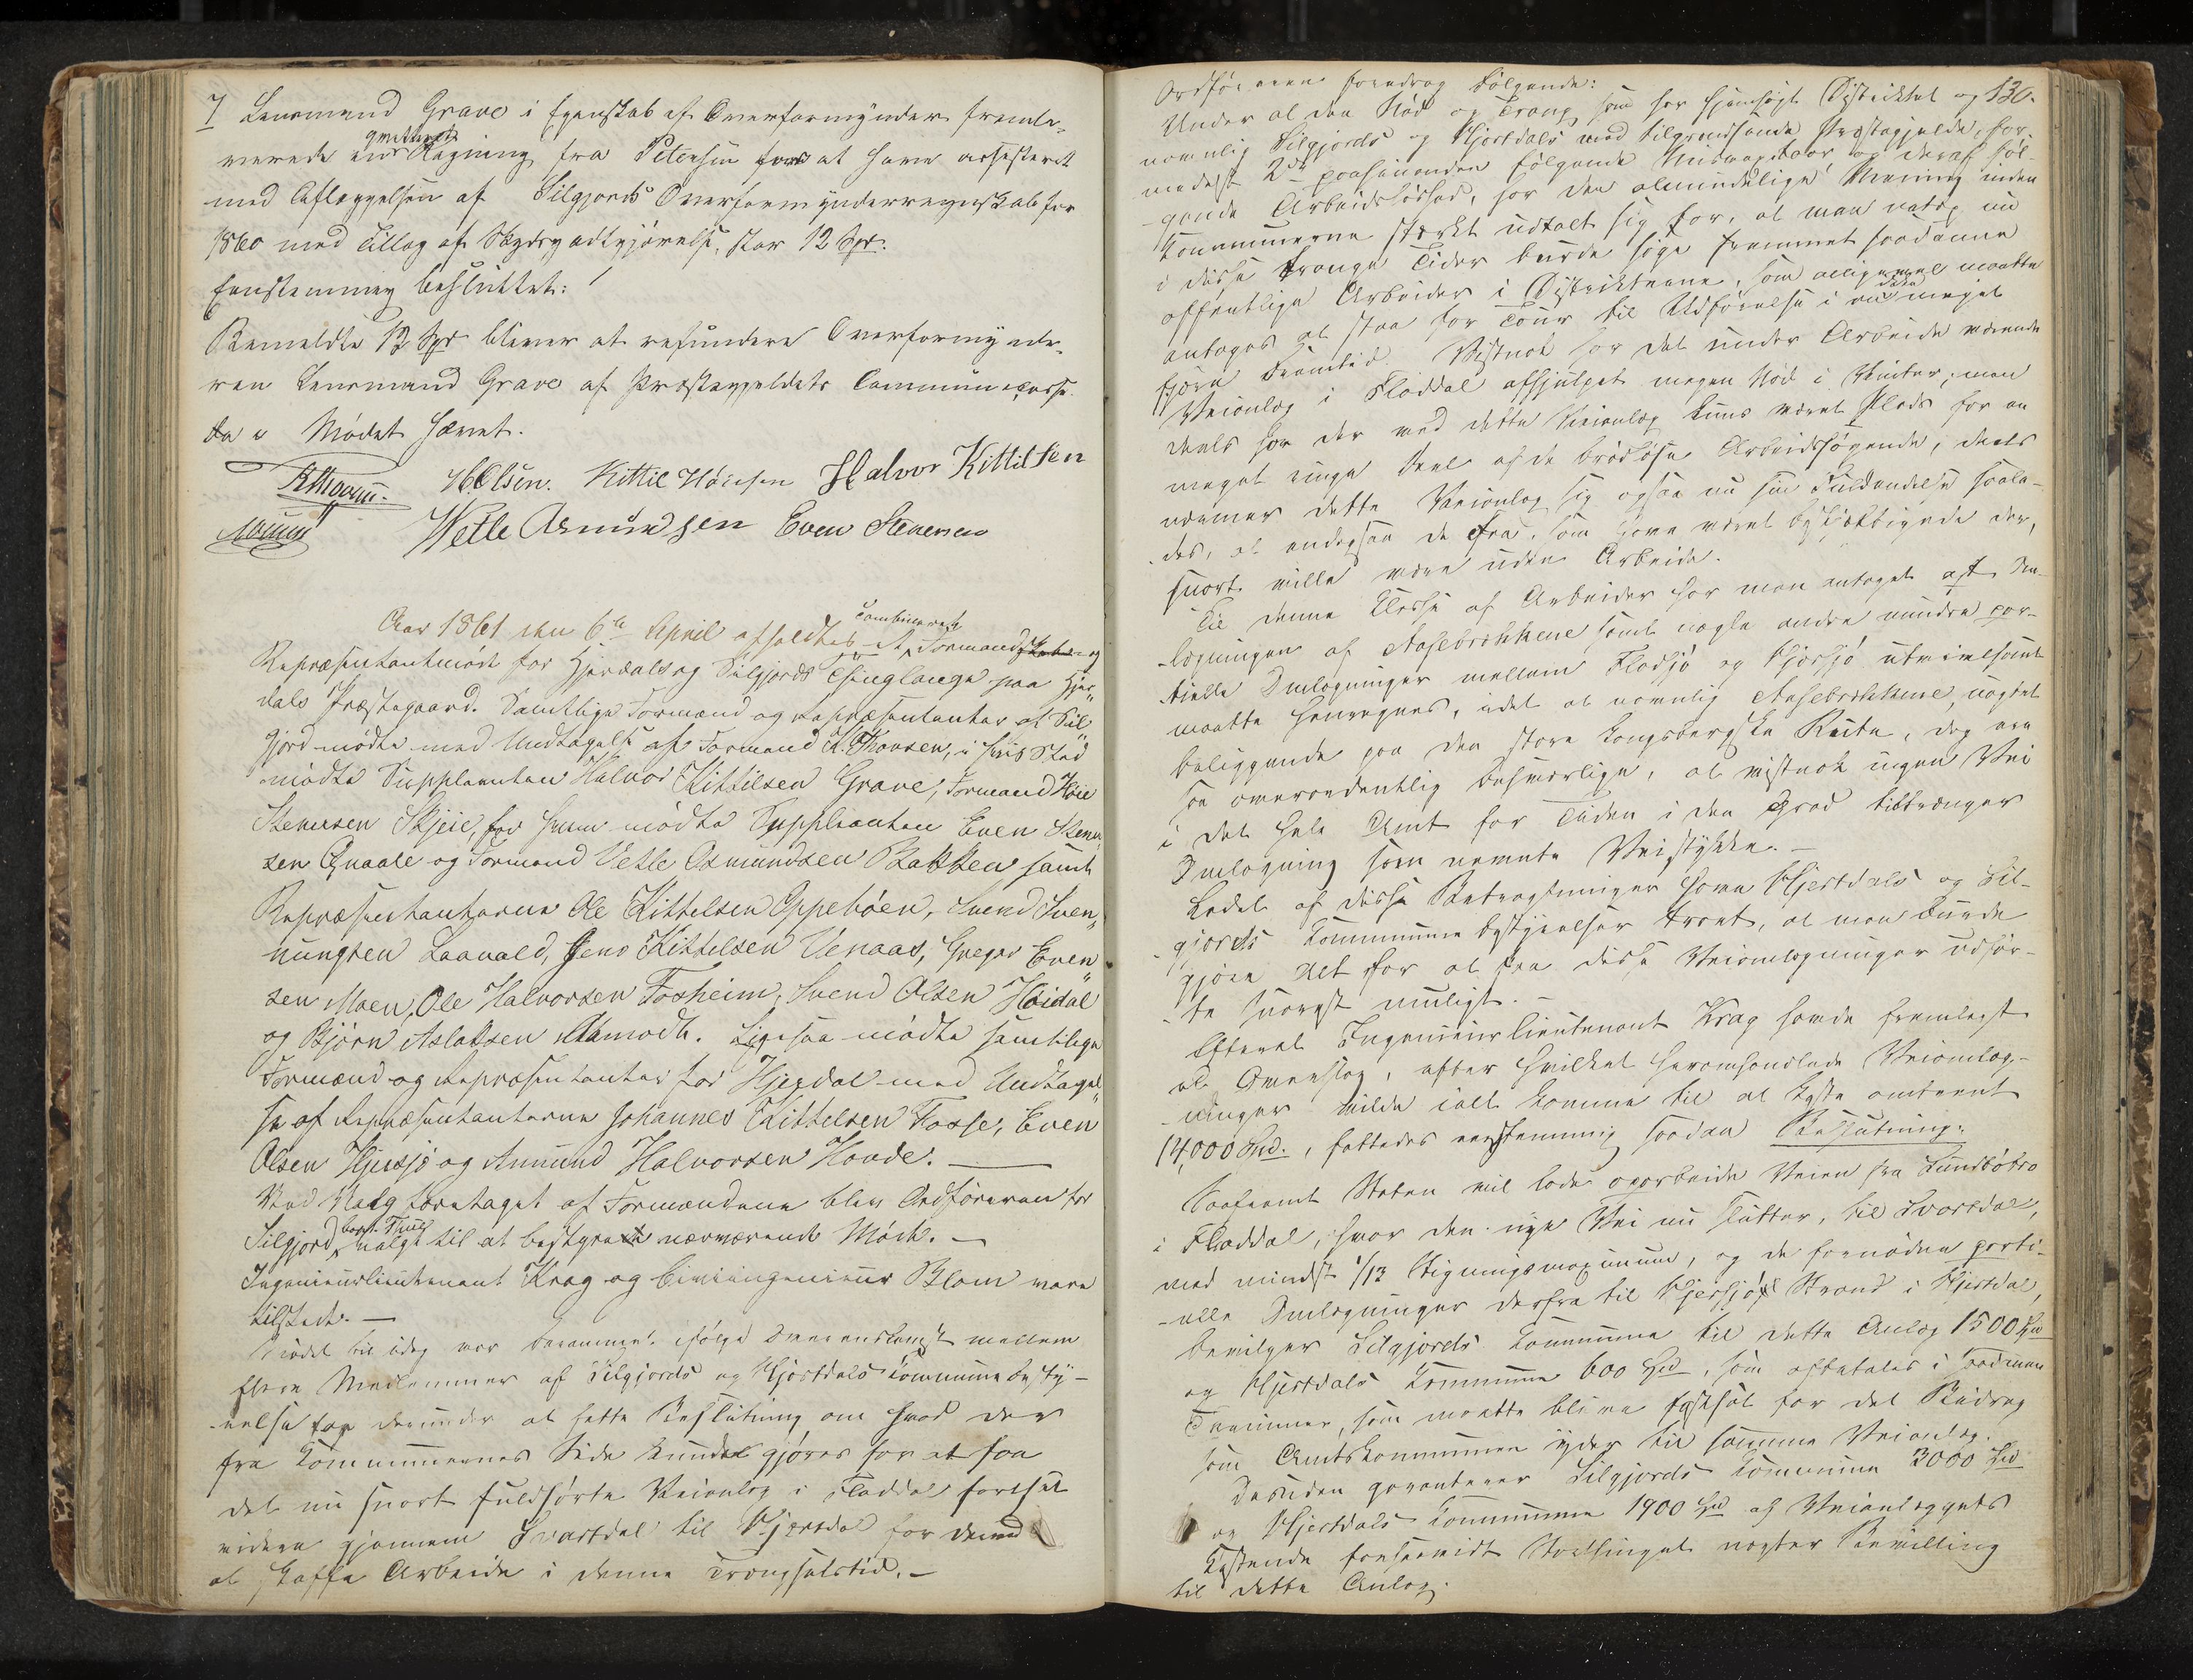 7 Lensmand Grave i Egenskab af Overformynder fremle-
qvitteret
verede en Regning fra Petersen for at have assisteret
med Aflæggelsen af Silgjords Overformynderregnskab for
1860 med Tillæg af Skydsgodtgjørelse, stor 12 Spd.
Eenstemmig besluttet:
Bemeldte 12 Spd bliver at refundere Overformynde-
ren Lensmand Grave af Præstegjeldets Communecasse.
Da Mødet hævet.
H.Olsen. Kittil Høiesen Halvor Kittilsen
Vetle Asmundsen Even Stenersen
Aar 1861 den 6te April afholdtes et combineret Formandskabs og
Repræsentantmøde for Hjerdals og Silgjords Thinglauge paa Hjer-
dals Præstegaard. Samtlige Formænd og Repræsentanter af Sil-
gjord mødte med Undtagelse af Formand K. Thovsen, i hvis Sted
mødte Suppleanten Halvor Kittilsen Grave, Formand Høie
Stenersen Skjeie, for ham mødte Suppleanten Even Stener-
sen Qvaale og Formand Vetle Asmundsen Bakken samt
Repræsentanterne Ole Kittelsen Oppebøen, Svend Sven-
nungsen Laavald, Jens Kittelsen Venaas, Greger Even-
sen Moen, Ole Halvorsen Forheim, Svend Olsen Høidal
og Bjørn Aslaksen Aamodt. Ligesaa mødte samtlige
Formænd og Repræsentanter for Hjerdal med Undtagel-
se af Repræsentanterne Johannes Kittelsen Fosse, Even
Olsen Hjersjø og Amund Halvorsen Hovde. —
Ved Valg foretaget af Formændene blev Ordføreren for
Silgjord valgt til at bestyre nærværende Møde. —
Ingenieurlieutenant Krag og Civilingenieur Blom vare
tilstede. —
Mødet til idag var berammet ifølge Overenskomst mellem
flere Medlemmer af Silgjords og Hjertdals Communebesty-
relse for derunder at fatte Beslutning om hvad der
fra Communernes Side kunde gjøres for at faa
det nu snart fuldførte Veianlæg i Fladdal fortsat
videre gjennem Svartdal til Hjertdal for derved
at skaffe Arbeide i denne Trængselstid. —
Ordføreren foredrog Følgende:
130.
Under al den Nød og Trang som har hjemsøgt Distriktet og
navnlig Silgjords og Hjertdals med tilgrændsende Præstegjelde, for-
medelst 2de paahinanden følgende Misvæxtaar og deraf føl-
gende Arbeidsløshed, har den almindelige Mening inden
Communerne stærkt udtalt sig for, at man netop nu
i disse trange Tider burde søge fremmet saadanne
offentlige Arbeider i Distrikterne, som alligevel maatte
antages at staa for Tour til Udførelse i en ikke meget
fjern Fremtid. Vistnok har det under Arbeide værende
Veianlæg i Fladdal afhjulpet megen Nød i Vinter; men
deels har der ved dette Veianlæg kuns været Plads for en
meget ringe Deel af de brødløse Arbeidssøgende, deels
nærmer dette Veianlæg sig ogsaa nu sin Fuldendelse saale-
des, at endogsaa de Faa, som have været beskjæftigede der,
snart ville være uden Arbeide.
Til denne Classe af Arbeider har man antaget at Om-
lægningen af Aasebrækkene samt nogle andre mindre par-
tielle Omlægninger mellem Fladsjø og Hjersjø utvivlsomt
maatte henregnes, idet at navnlig Aasebrækkene, uagtet
beliggende paa den store Kongsbergske Route, dog ere
saa overordentlig besværlige, at vistnok ingen Vei
i det hele Amt for Tiden i den Grad tiltrænger
Omlægning som nævnte Veistykke. —
Ledet af disse Betragtninger have Hjertdals og Sil-
gjords Communebestyrelser troet, at man burde
gjøre Alt for at faa disse Veiomlægninger udfør-
te snarest muligt. —
Efterat Ingenieurlieutenant Krag havde fremlagt
et Overslag, efter hvilket heromhandlede Veiomlæg-
ninger vilde ialt komme til at koste omtrent
14,000 Spd., fattedes eenstemmig saadan Beslutning:
Saafremt Staten vil lade oparbeide Veien fra Sundbøbro
i Fladdal, hvor den nye Vei nu slutter, til Svartdal,
med mindst 1/13 Stigningsmaximum, og de fornødne parti-
elle Omlægninger derfra til Hjersjø Strand i Hjertdal,
bevilger Silgjords Commune til dette Anlæg 1500 Spd
og Hjertdals Commune 600 Spd, som afbetales i saadanne
Terminer, som maatte blive fastsat for det Bidrag
som Amtskommunen yder til samme Veianlæg.
Desuden garanterer Silgjords Commune 3000 Spd
og Hjertdals Commune 1900 Spd af Veianlæggets
Kostende forsaavidt Storthinget nægter Bevilling
til dette Anlæg.